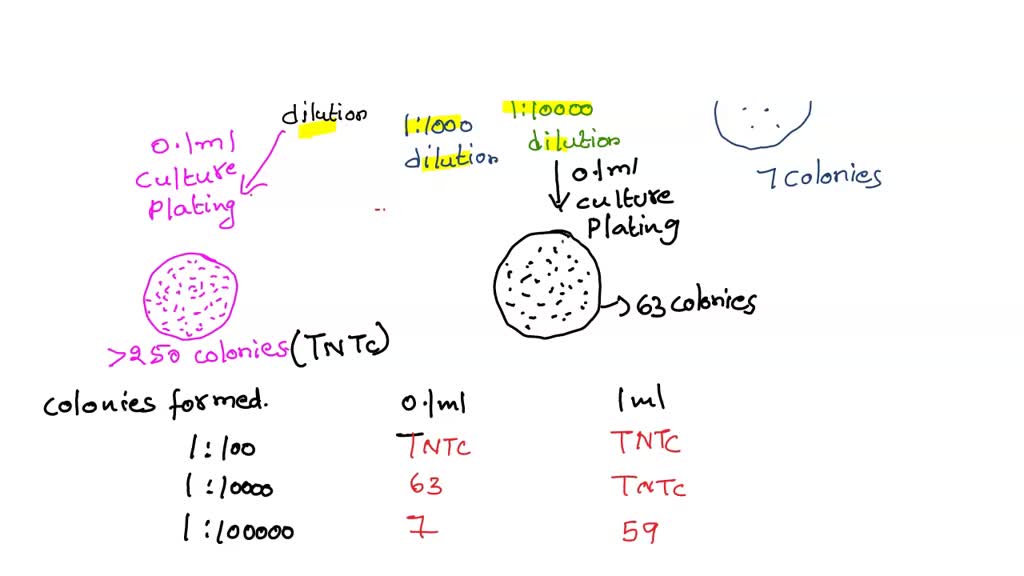 dilution
0.1ml
culture
Plating
1:1000
dilution
1:10000
dilution
0.1ml
culture
Plating
7 colonies
63 colonies
>250 colonies (TNTC)
colonies formed. 0.1ml 1ml
1:100 TNTC TNTC
1:10000 63 TNTC
1:100000 7 59